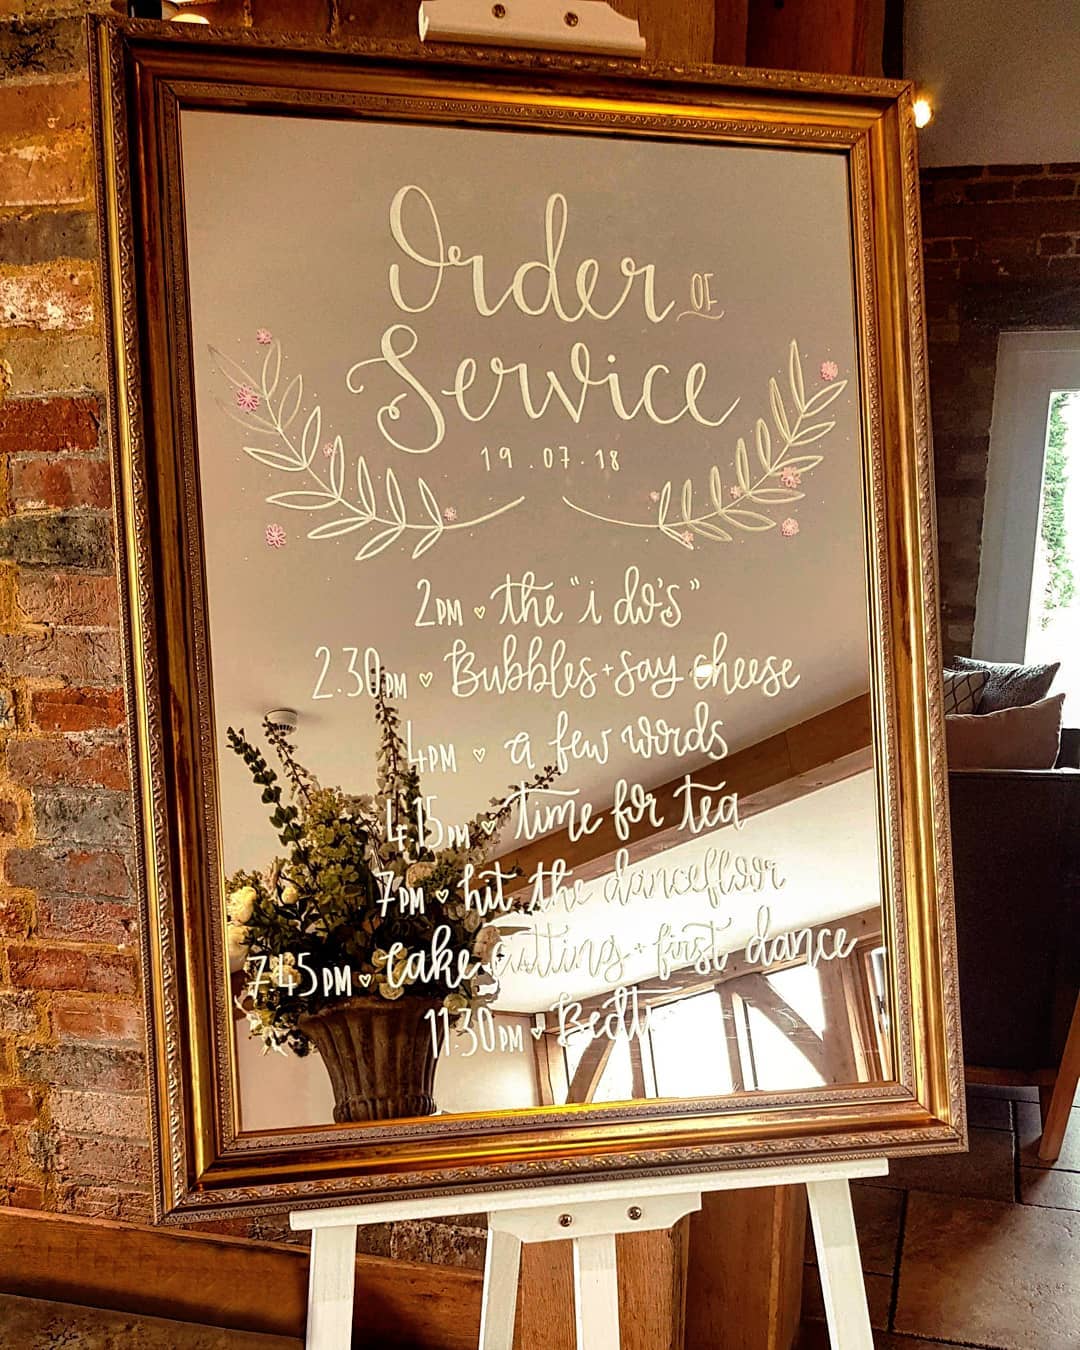 Order OF
Service
19.07.18
2PM the "i do's"
2.30PM Bubbles + say cheese
4PM a few words
4.15PM time for tea
7PM hit the dancefloor
7.45PM cake cutting + first dance
11.30PM